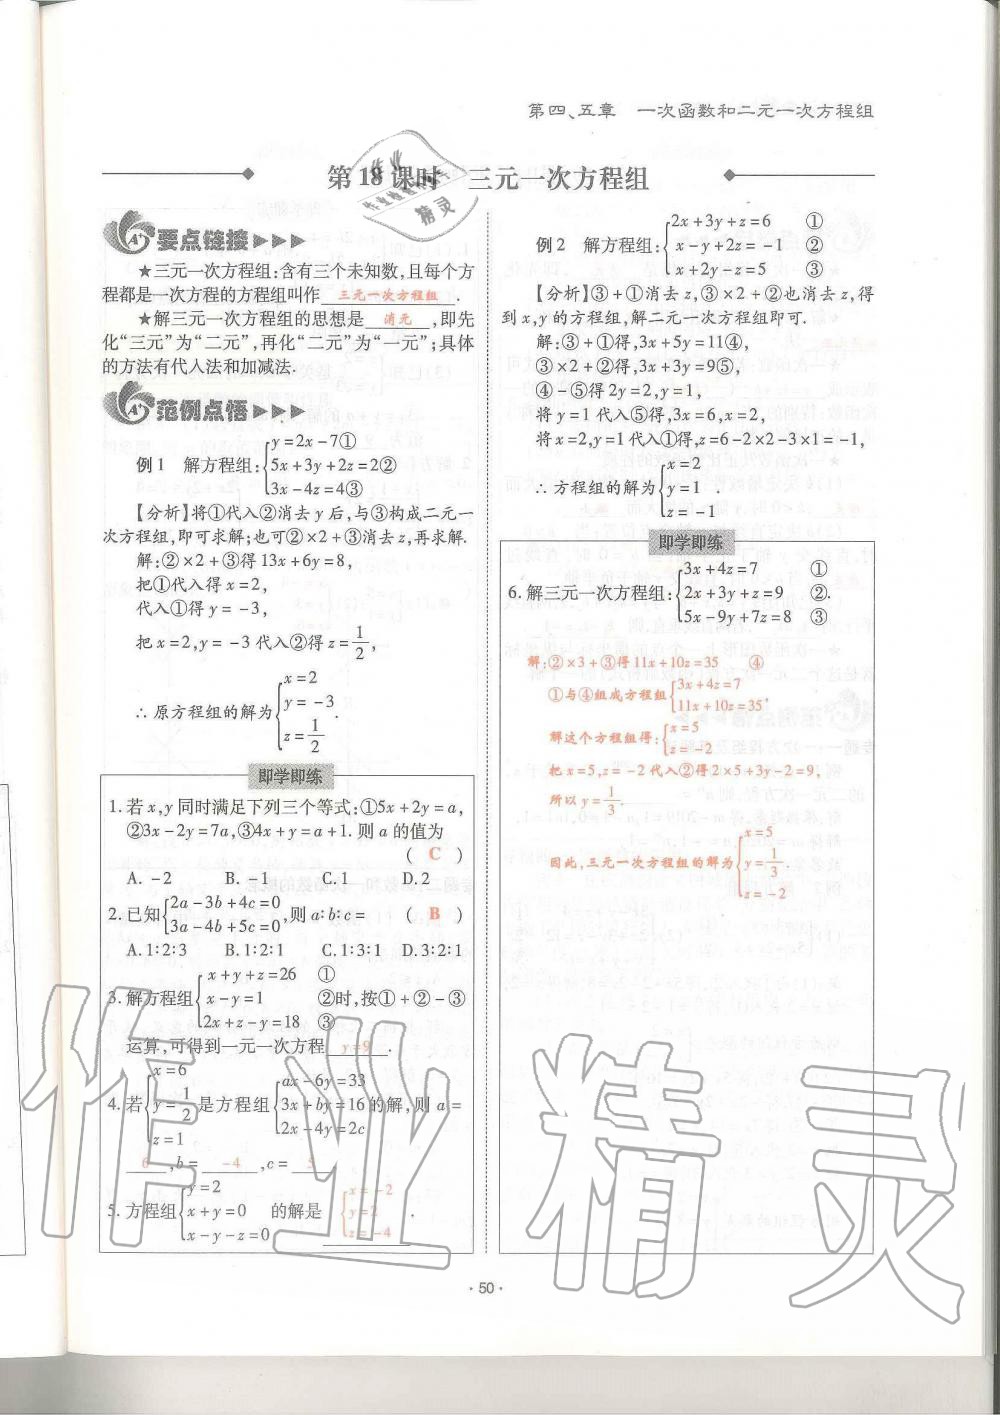 第四、五章 一次函数和二元一次方程组
第18课时 三元一次方程组
要点链接
★三元一次方程组:含有三个未知数,且每个方
程都是一次方程的方程组叫作 三元一次方程组 .
★解三元一次方程组的思想是 消元 ,即先
化“三元”为“二元”,再化“二元”为“一元”;具体
的方法有代入法和加减法.
范例点悟
y=2x-7①
例1 解方程组:{5x+3y+2z=2②
3x-4z=4③
【分析】将①代入②消去y后,与③构成二元一
次方程组,即可求解;也可②×2+③消去z,再求解.
解:②×2+③得13x+6y=8,
把①代入得x=2,
代入①得y=-3,
把x=2,y=-3代入②得z=1/2,
x=2
∴原方程组的解为{y=-3.
z=1/2
即学即练
1.若x,y同时满足下列三个等式:①5x+2y=a,
②3x-2y=7a,③4x+y=a+1.则a的值为
( C )
A.-2 B.-1 C.1 D.2
2a-3b+4c=0
2.已知{ ,则a∶b∶c= ( B )
3a-4b+5c=0
A.1∶2∶3 B.1∶2∶1 C.1∶3∶1 D.3∶2∶1
x+y+z=26 ①
3.解方程组{x-y=1 ②时,按①+②-③
2x+z-y=18 ③
运算,可得到一元一次方程 y=9 .
x=6 ax-6y=33
4.若{y=1/2是方程组{3x+by=16的解,则a=
z=1 2x-4y=2c
6 ,b= -4 ,c= 5 .
y=2 x=-2
5.方程组{x+y=0 的解是 {y=2 .
x-y-z=0 z=-4
2x+3y+z=6 ①
例2 解方程组:{x-y+2z=-1 ②
x+2y-z=5 ③
【分析】③+①消去z,③×2+②也消去z,得
到x,y的方程组,解二元一次方程组即可.
解:③+①得,3x+5y=11④,
③×2+②得,3x+3y=9⑤,
④-⑤得2y=2,y=1,
将y=1代入⑤得,3x=6,x=2,
将x=2,y=1代入①得,z=6-2×2-3×1=-1,
x=2
∴方程组的解为{y=1 .
z=-1
即学即练
3x+4z=7 ①
6.解三元一次方程组:{2x+3y+z=9 ②.
5x-9y+7z=8 ③
解:②×3+③得11x+10z=35 ④
3x+4z=7
①与④组成方程组{
11x+10z=35,
x=5
解这个方程组得:{
z=-2
把x=5,z=-2代入②得2×5+3y-2=9,
所以y=1/3.
x=5
因此,三元一次方程组的解为{y=1/3.
z=-2
·50·
作业精灵
作业精灵